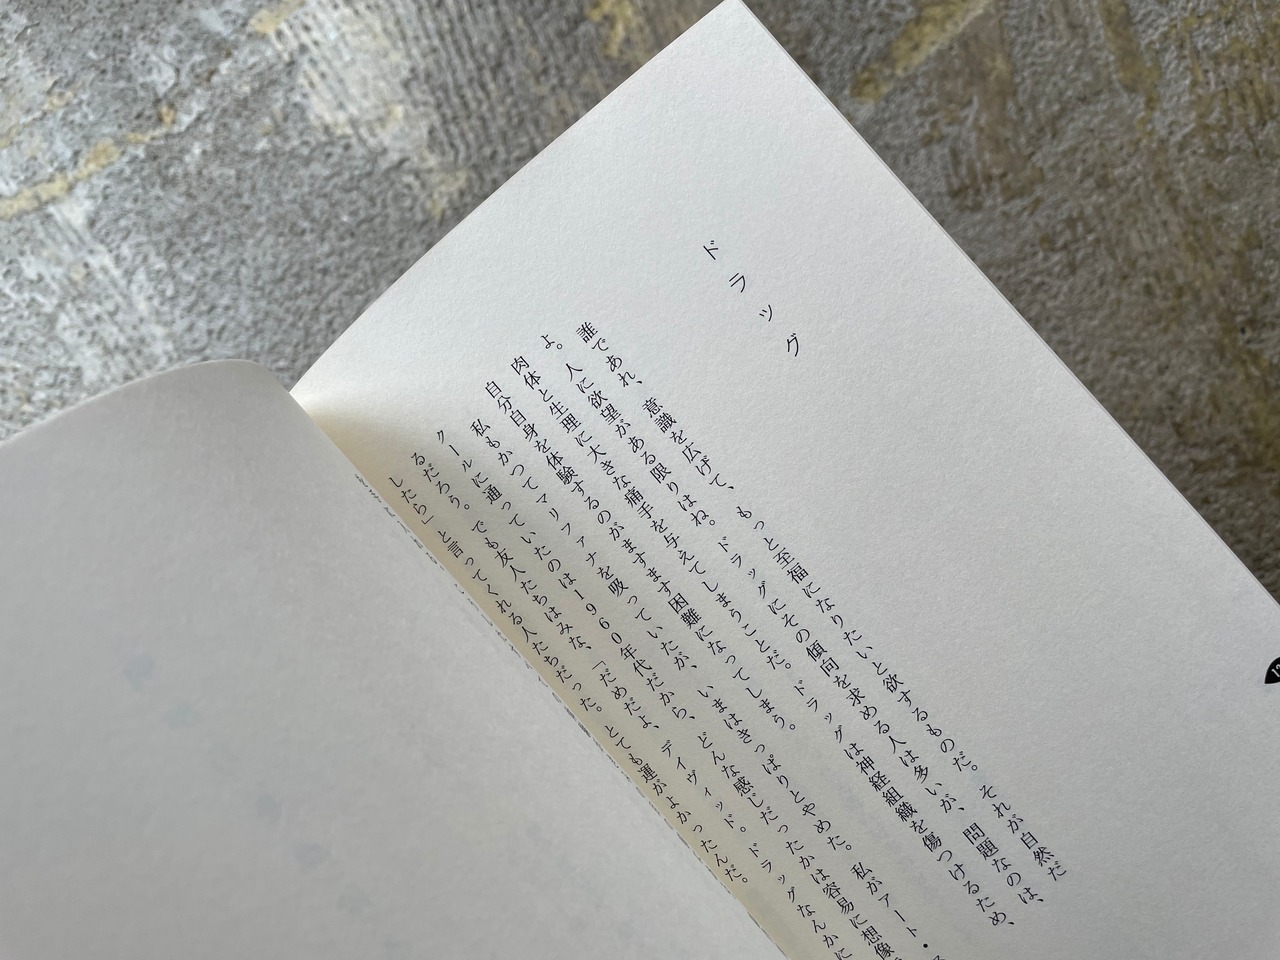 ドラッグ
誰であれ、意識を広げて、もっと至福になりたいと欲するものだ。それが自然だ
よ。人に欲望がある限りはね。ドラッグにその傾向を求める人は多いが、問題なのは、
肉体と生理に大きな痛手を与えてしまうことだ。ドラッグは神経組織を傷つけるため、
自分自身を体験するのがますます困難になってしまう。
私もかつてマリファナを吸っていたが、いまはきっぱりとやめた。私がアート・
クールに通っていたのは1960年代だから、どんな感じだったかは容易に想像
るだろう。でも友人たちはみな、「だめだよ、デイヴィッド。ドラッグなんかに
したら」と言ってくれる人たちだった。とても運がよかったんだ。